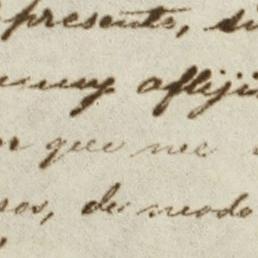 presente, si
muy afliji
r que me
sos, de modo